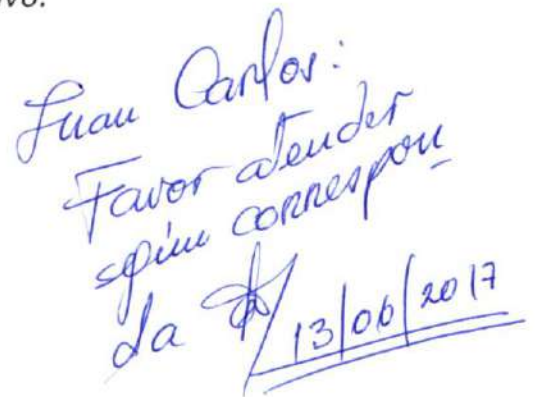 vo.
Juan Carlos:
Favor atender
según correspon
da
13/06/2017